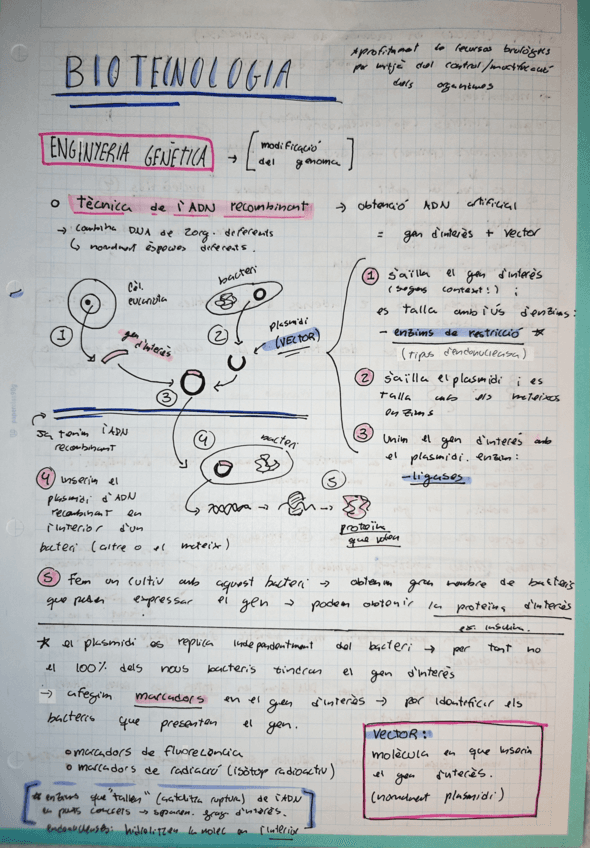 BIOTECNOLOGIA
Aprofitament de recursos biològics
per mitjà del control/modificació
dels organismes
ENGINYERIA GENÈTICA → [modificació
del genoma]
o tècnica de l'ADN recombinant → obtenció ADN artificial
→ combina DNA de 2 org. diferents = gen d'interès + vector
↳ normalment espècies diferents.
Cèl.
eucariota
bacteri
gen
d'interès
plasmidi
(VECTOR)
1
2
3
1 s'aïlla el gen d'interès
(segons context!) i
es talla amb l'ús d'enzims:
- enzims de restricció *
(tipus d'endonucleasa)
2 s'aïlla el plasmidi i es
talla amb els mateixos
enzims
3 Unim el gen d'interès amb
el plasmidi. enzim:
- ligases
Ja tenim l'ADN
recombinant
4
bacteri
5
proteïna
que volem
4 Inserim el
plasmidi d'ADN
recombinant en
l'interior d'un
bacteri (altre o el mateix)
5 Fem un cultiu amb aquest bacteri → obtenim gran nombre de bacteris
que poden expressar el gen → podem obtenir la proteïna d'interès
ex. insulina.
* el plasmidi es replica independentment del bacteri → per tant no
el 100% dels nous bacteris tindran el gen d'interès
→ afegim marcadors en el gen d'interès → per identificar els
bacteris que presenten el gen.
o marcadors de fluorecència
o marcadors de radiació (isòtop radioactiu)
VECTOR:
molècula en que inserim
el gen d'interès.
(normalment plasmidi)
* enzims que "tallen" (catalitza ruptura) de l'ADN
en punts concrets → separen. frag. d'interès.
endonucleases: hidrolitzen la molèc en l'interior